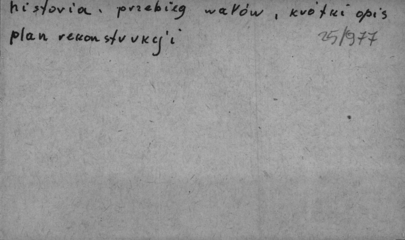 historia. przebieg wałów, krótki opis
plan rekonstrukcji
25/977